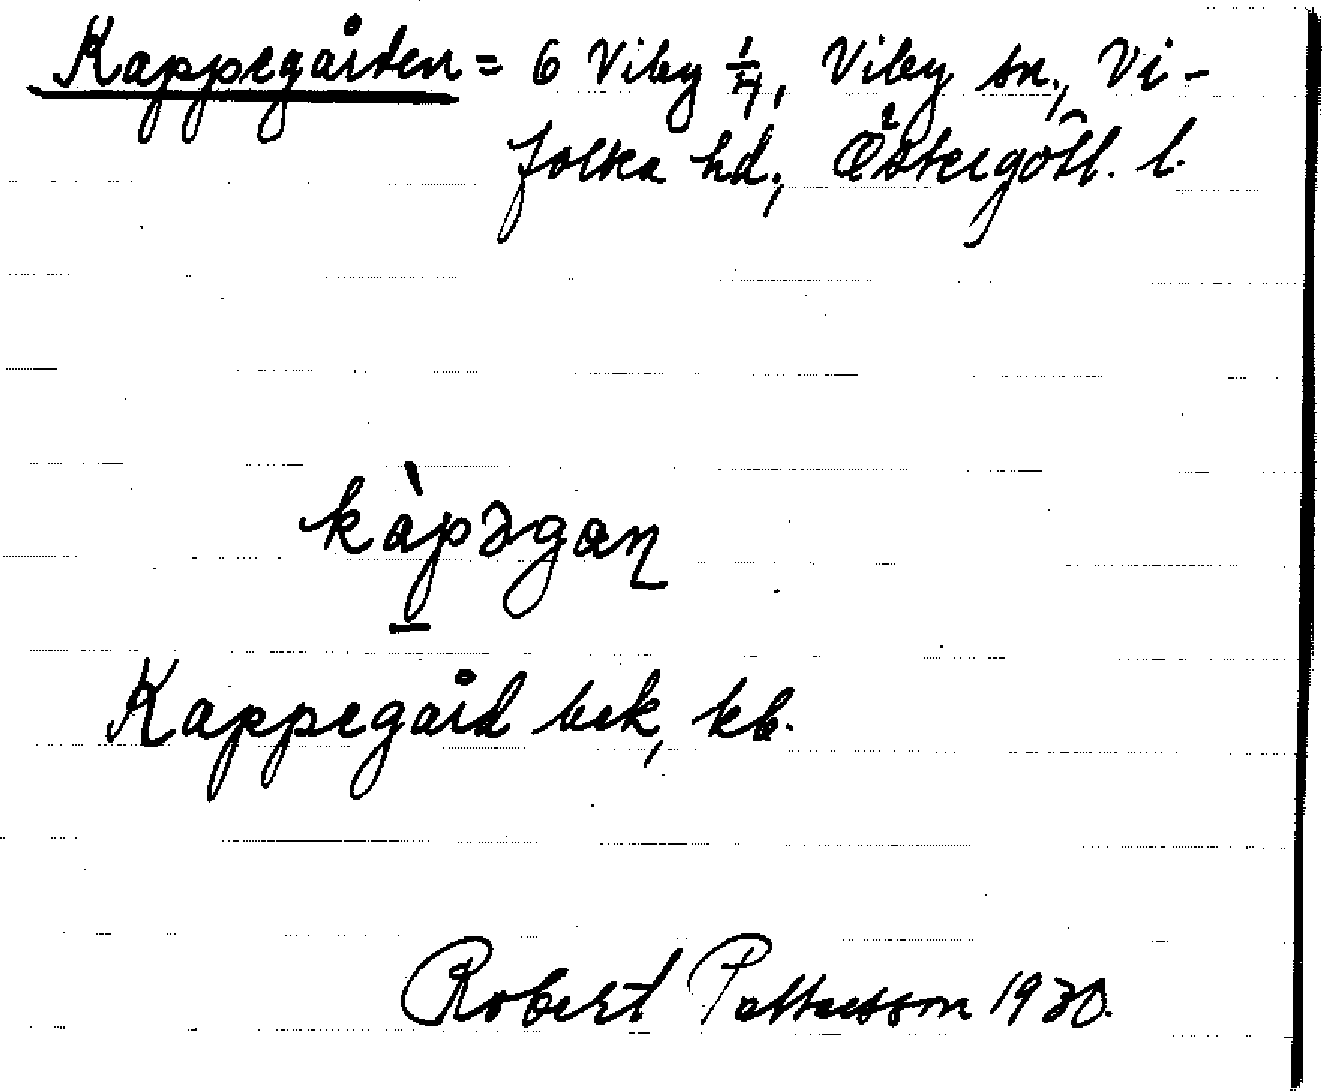 Kappegården = 6 Viby 1/4, Viby sn., Vi-
folka hd., Östergötl. l.
kàp̲əgaɳ
Kappegård bek, kb.
Robert Pettersson 1930.